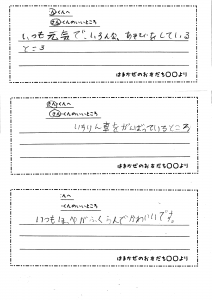 くんへ
くんのいいところ
いつも元気で、いろんな、あそびをしている
ところ
はるかぜのおともだち〇〇より
さんくんへ
さんくんのいいところ
いちりん車をがんばっているところ
はるかぜのおともだち〇〇より
くんへ
くんのいいところ
いつもほっぺがふくらんでかわいいです。
はるかぜのおともだち〇〇より